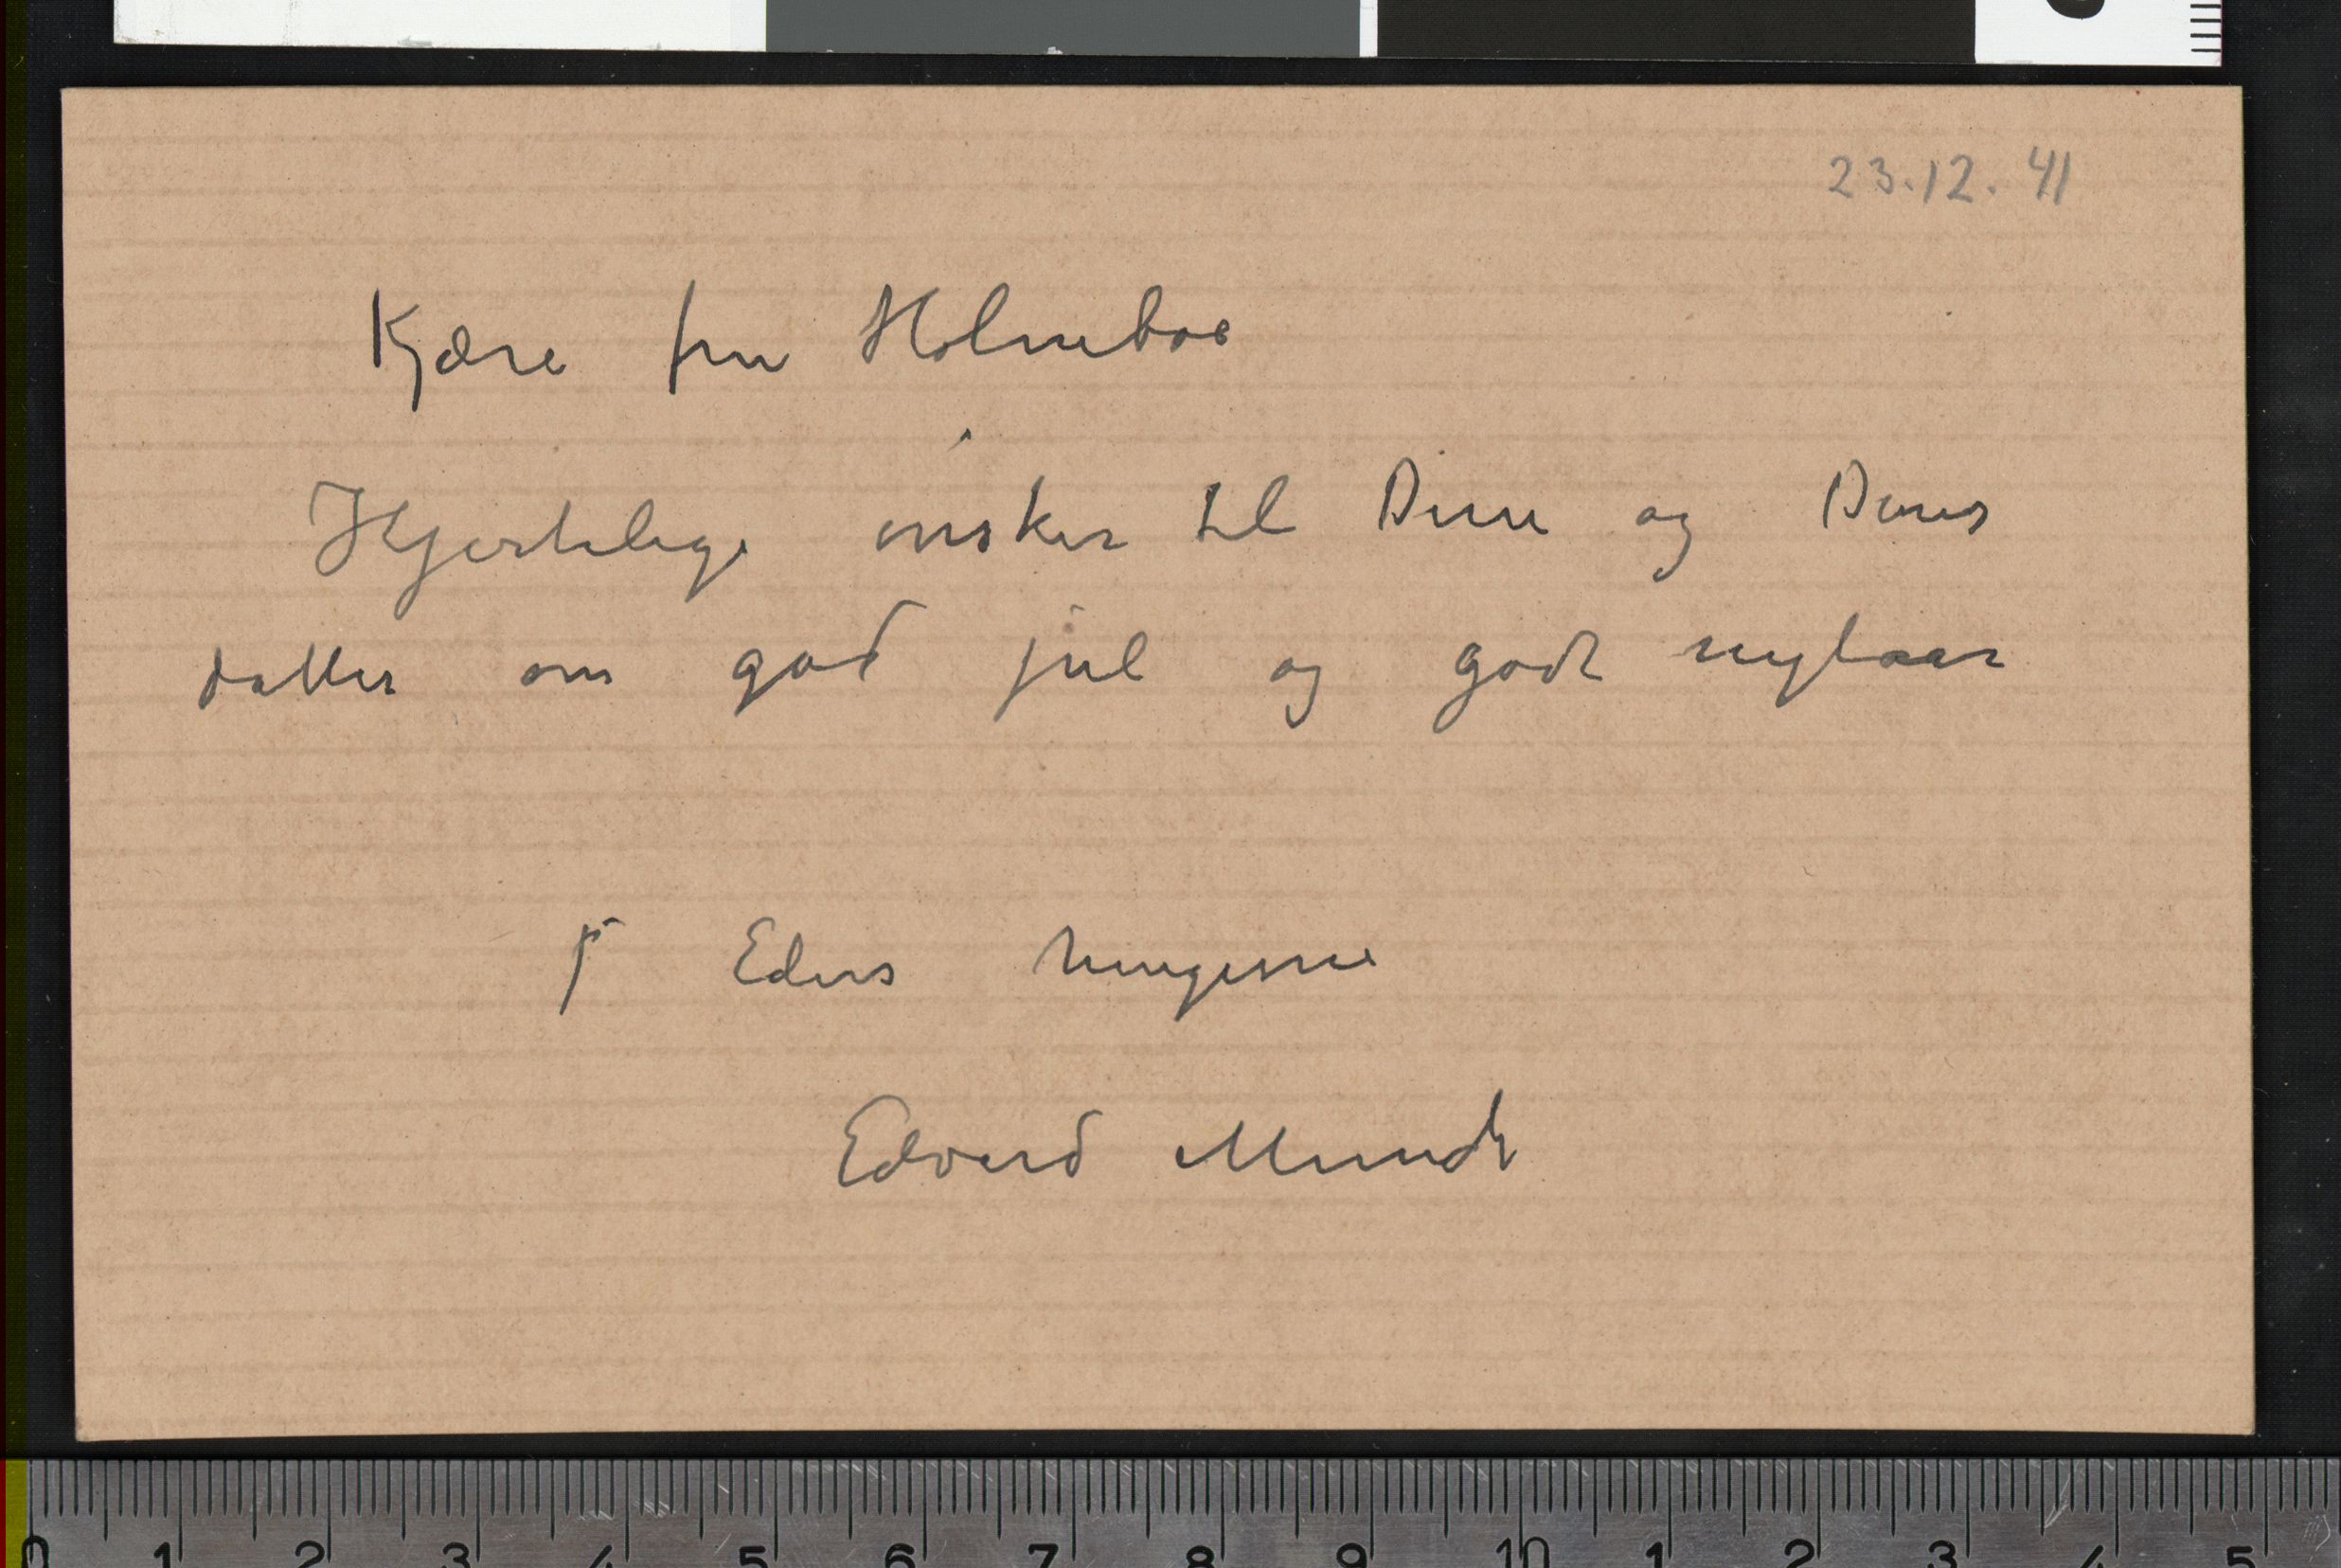 23.12.41
Kjære fru Holmeboe
Hjertelige ønsker til Dem og Deres
datter om god jul og godt nytaar
Eders hengivne
Edvard Munch
0 1 2 3 4 5 6 7 8 9 10 1 2 3 4 5